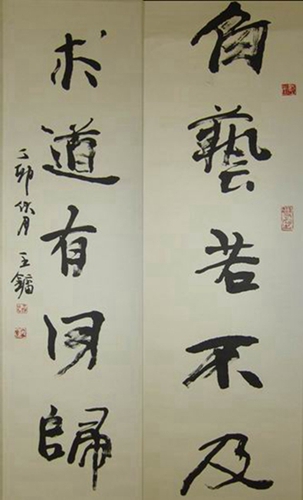 藝若不及
求道有同歸
丁卯秋月 王鏞